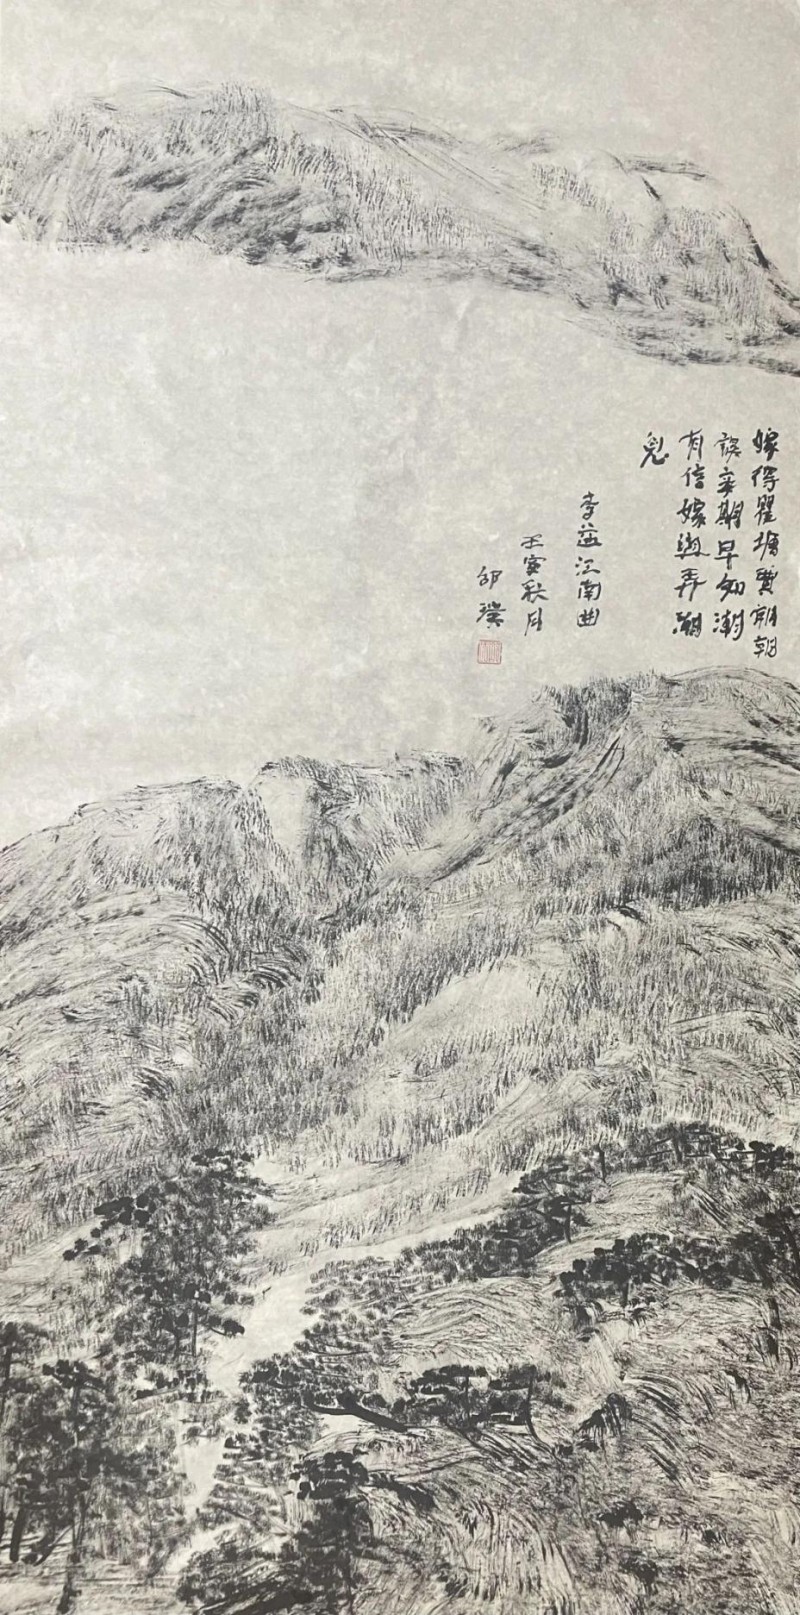 嫁得瞿塘賈朝朝
誤妾期早知潮
有信嫁與弄潮
兒
李益江南曲
壬寅秋月
邵璞